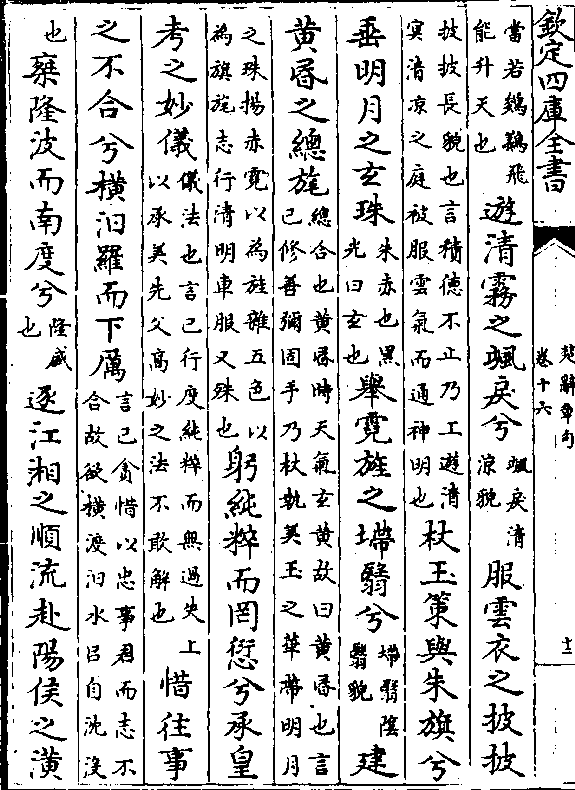 欽定四庫全書
楚辭章句
卷十六
十二
當若飛能升天也遊清霧之颯戾兮颯戾清涼貌服雲衣之披披
披披長貌也言積德不止乃工遊清冥清凉之庭被服雲氣而通神明也杖玉策與朱旗兮
垂明月之玄珠朱赤也黑光曰玄也舉霓旌之墆翳兮墆翳隂翳貌建
黄昏之總旄總合也黄昏時天氣玄黄故曰黄昏也言已修善彌固手乃杖執美玉之華帶明月
之珠揚赤霓以為旌雜五色以為旗旄志行清明車服又殊也躬純粹而罔愆兮承皇
考之妙儀儀法也言已行度純粹而無過失上以承美先父高妙之法不敢解也惜往事
之不合兮橫汨羅而下厲言已貪惜以忠事君而志不合故欲橫渡汨水㠯自沈沒
也椉隆波而南度兮隆盛也逐江湘之順流赴陽侯之潢